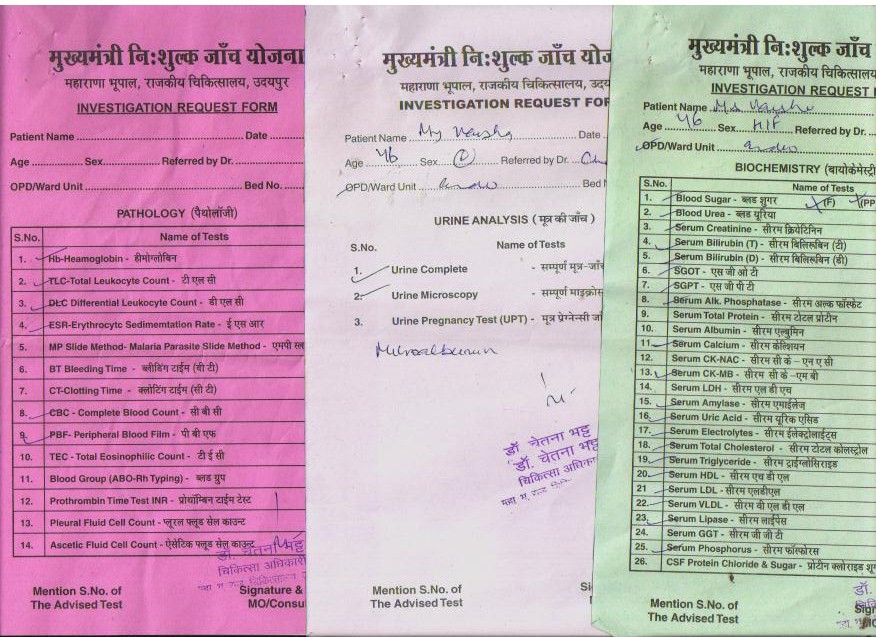 मुख्यमंत्री नि:शुल्क जाँच योजना
महाराणा भूपाल, राजकीय चिकित्सालय, उदयपुर
INVESTIGATION REQUEST FORM
Patient Name Date
Age Sex Referred by Dr.
OPD/Ward Unit Bed No.
PATHOLOGY (पैथोलॉजी)
S.No. Name of Tests
1. Hb-Heamoglobin - हीमोग्लोबिन
2. TLC-Total Leukocyte Count - टी एल सी
3. DLC Differential Leukocyte Count - डी एल सी
4. ESR-Erythrocytc Sedimemtation Rate - ई एस आर
5. MP Slide Method- Malaria Parasite Slide Method - एमपी
6. BT Bleeding Time - ब्लीडिंग टाईम (बी टी)
7. CT-Clotting Time - क्लोटिंग टाईम (सी टी)
8. CBC - Complete Blood Count - सी बी सी
9. PBF- Peripheral Blood Film - पी बी एफ
10. TEC - Total Eosinophilic Count - टी ई सी
11. Blood Group (ABO-Rh Typing) - ब्लड ग्रुप
12. Prothrombin Time Test INR - प्रोथॉम्बिन टाईम टेस्ट
13. Pleural Fluid Cell Count - प्लूरल फ्लूड सेल काउन्ट
14. Ascetic Fluid Cell Count - ऐसेटिक फ्लूड सेल काउन्ट
डॉ. चेतना भट्ट
चिकित्सा अधिकारी
Mention S.No. of
The Advised Test
Signature &
MO/Consu
मुख्यमंत्री नि:शुल्क जाँच
महाराणा भूपाल, राजकीय चिकित्सालय,
INVESTIGATION REQUEST FOR
Patient Name Date
Age 46 Sex Referred by Dr.
OPD/Ward Unit Bed
URINE ANALYSIS (मूत्र की जाँच)
S.No. Name of Tests
1. Urine Complete - सम्पूर्ण मूत्र-जाँच
2. Urine Microscopy - सम्पूर्ण
3. Urine Pregnancy Test (UPT) - मूत्र प्रेग्नेन्सी
डॉ. चेतना भट्ट
डॉ. चेतना भट्ट
चिकित्सा अधिकारी
Mention S.No. of
The Advised Test
मुख्यमंत्री नि:शुल्क जाँच
महाराणा भूपाल, राजकीय चिकित्सालय
INVESTIGATION REQUEST
Patient Name
Age 46 Sex H/F Referred by Dr.
OPD/Ward Unit
BIOCHEMISTRY
S.No. Name of Tests
1. Blood Sugar - ब्लड शुगर (F) (PP
2. Blood Urea - ब्लड यूरिया
3. Serum Creatinine - सीरम क्रियेटिनिन
4. Serum Bilirubin (T) - सीरम बिलिरूबिन (टी)
5. Serum Bilirubin (D) - सीरम बिलिरूबिन (डी)
6. SGOT - एस जी ओ टी
7. SGPT - एस जी पी टी
8. Serum Alk. Phosphatase - सीरम अल्क फॉस्फेट
9. Serum Total Protein - सीरम टोटल प्रोटीन
10. Serum Albumin - सीरम एल्बुमिन
11. Serum Calcium - सीरम केल्शियन
12. Serum CK-NAC - सीरम सी के - एन ए सी
13. Serum CK-MB - सीरम सी के -एम बी
14. Serum LDH - सीरम एल डी एच
15. Serum Amylase - सीरम एमाईलेज
16. Serum Uric Acid - सीरम यूरिक एसिड
17. Serum Electrolytes - सीरम ईलेक्ट्रोलाईट्स
18. Serum Total Cholesterol - सीरम टोटल कोलस्ट्रोल
19. Serum Triglyceride - सीरम ट्राईग्लोसिराइड
20. Serum HDL - सीरम एच डी एल
21 Serum LDL - सीरम एलडीएल
22. Serum VLDL - सीरम वी एल डी एल
23. Serum Lipase - सीरम लाईपेस
24. Serum GGT - सीरम जी जी टी
25. Serum Phosphorus - सीरम फॉस्फोरस
26. CSF Protein Chloride & Sugar - प्रोटीन क्लोराइड
Mention S.No. of
The Advised Test
डॉ.